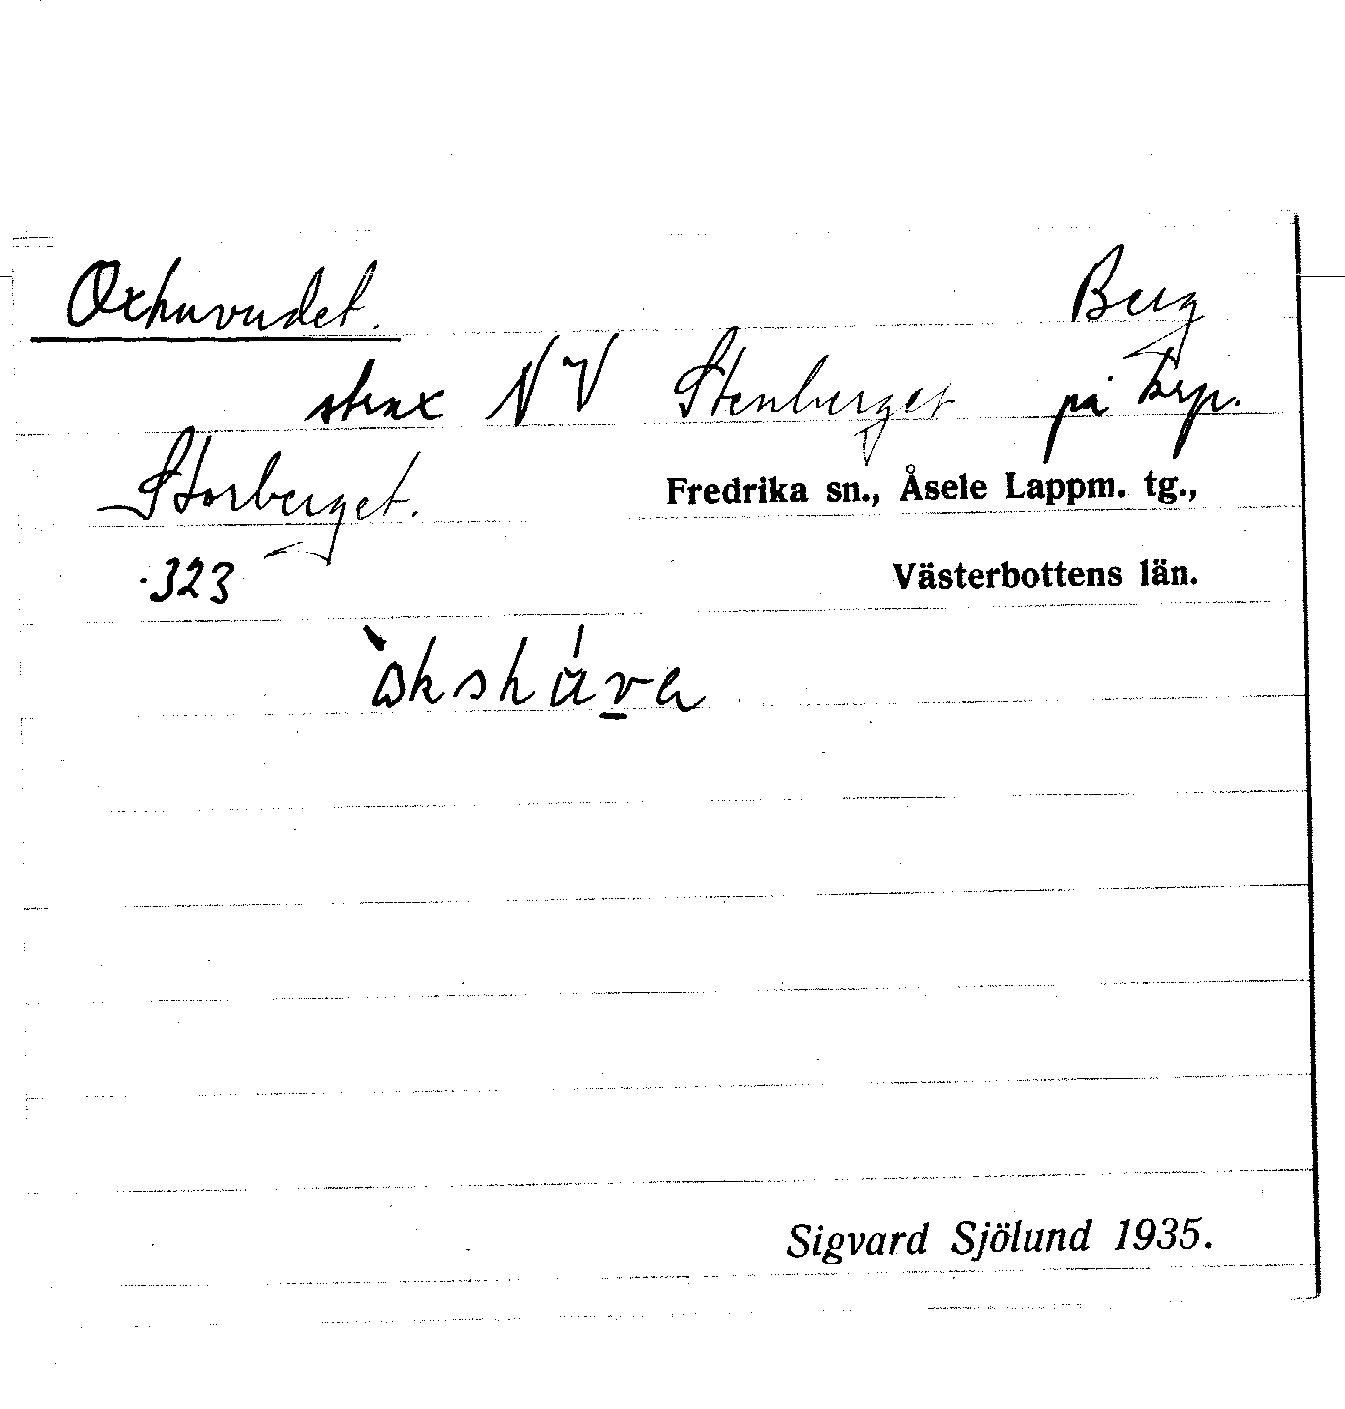 Oxhuvudet. Berg
strax NV Stenberget på
Storberget. Fredrika sn., Åsele Lappm. tg.,
323 Västerbottens län.
Sigvard Sjölund 1935.